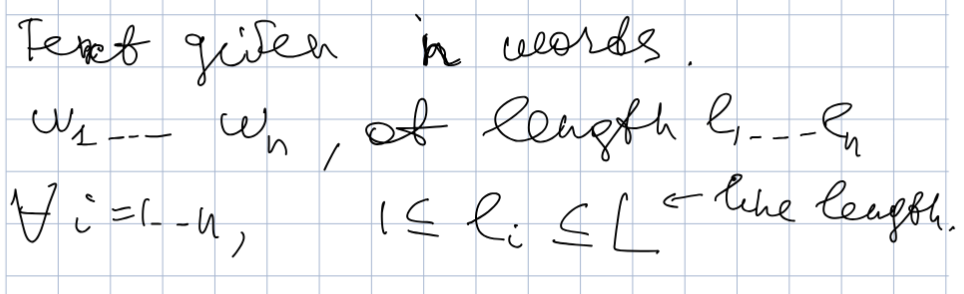 Text given n words.
w₁ --- wₙ, of length l₁ --- lₙ
∀ i = 1 -- n, 1 ≤ lᵢ ≤ L ← line length.